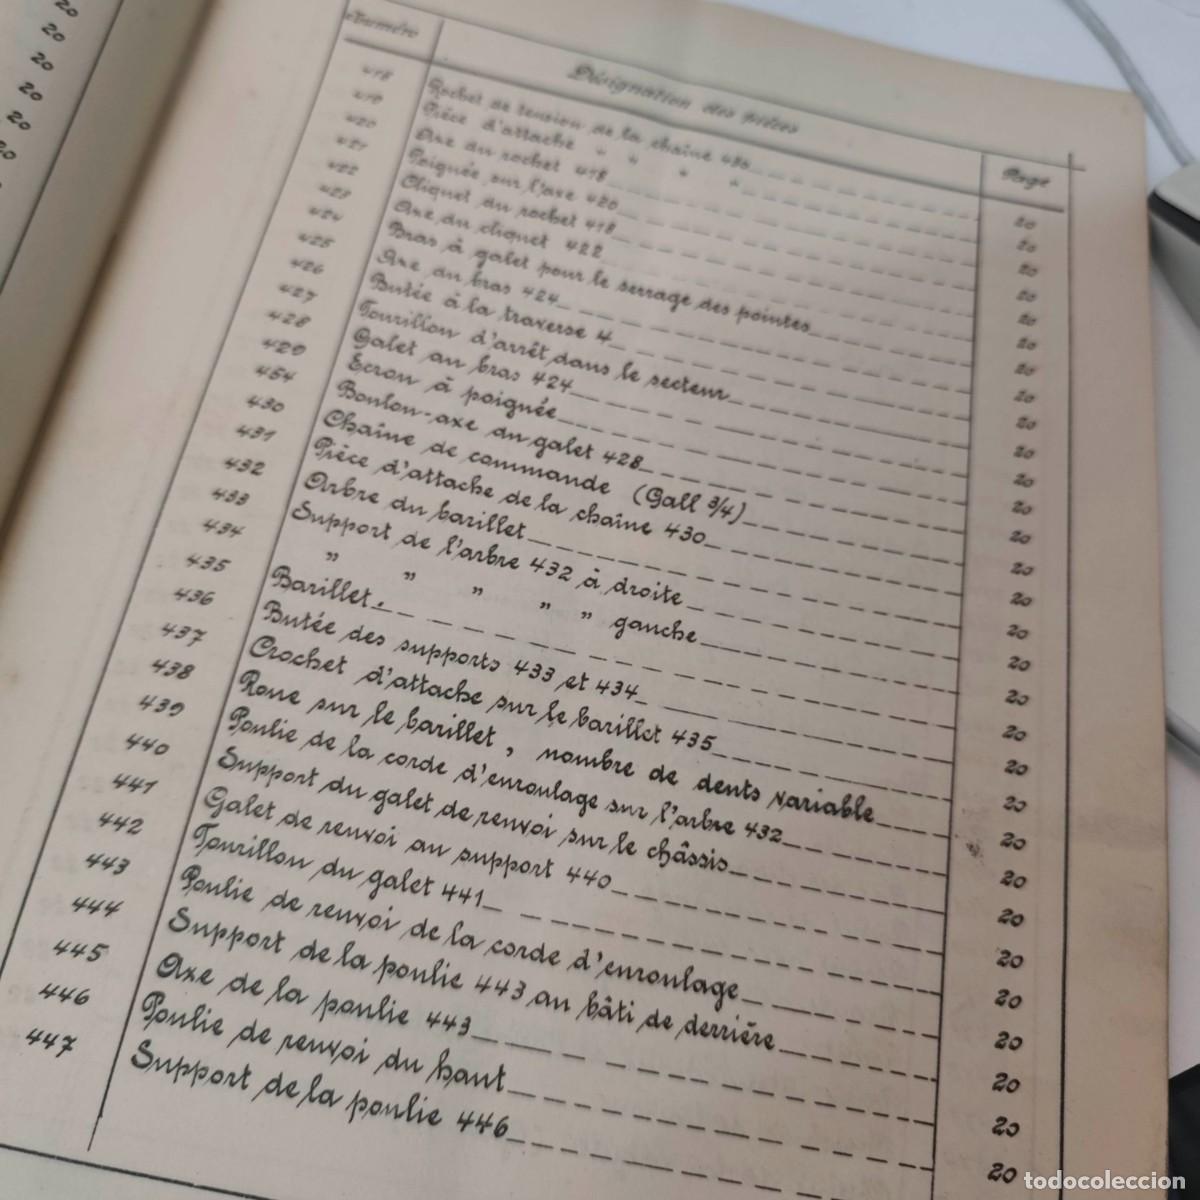 20
20
20
20
20
20
Numéro Désignation des pièces Page
418 Rochet de tension de la chaîne 430 20
419 Pièce d'attache " " " " 20
420 Axe du rochet 418 20
421 Poignée sur l'axe 420 20
422 Cliquet du rochet 418 20
423 Axe du cliquet 422 20
424 Bras à galet pour le serrage des pointes 20
425 Axe du bras 424 20
426 Butée à la traverse 4 20
427 Tourillon d'arrêt dans le secteur 20
428 Galet au bras 424 20
429 Ecrou à poignée 20
454 Boulon-axe du galet 428 20
430 Chaîne de commande (Gall 3/4) 20
431 Pièce d'attache de la chaîne 430 20
432 Arbre du barillet 20
433 Support de l'arbre 432 à droite 20
434 " " " " " gauche 20
435 Barillet. 20
436 Butée des supports 433 et 434 20
437 Crochet d'attache sur le barillet 435 20
438 Roue sur le barillet, nombre de dents variable 20
439 Poulie de la corde d'enroulage sur l'arbre 432 20
440 Support du galet de renvoi sur le châssis 20
441 Galet de renvoi au support 440 20
442 Tourillon du galet 441 20
443 Poulie de renvoi de la corde d'enroulage 20
444 Support de la poulie 443 au bâti de derrière 20
445 Axe de la poulie 443 20
446 Poulie de renvoi du haut 20
447 Support de la poulie 446 20
todocoleccion